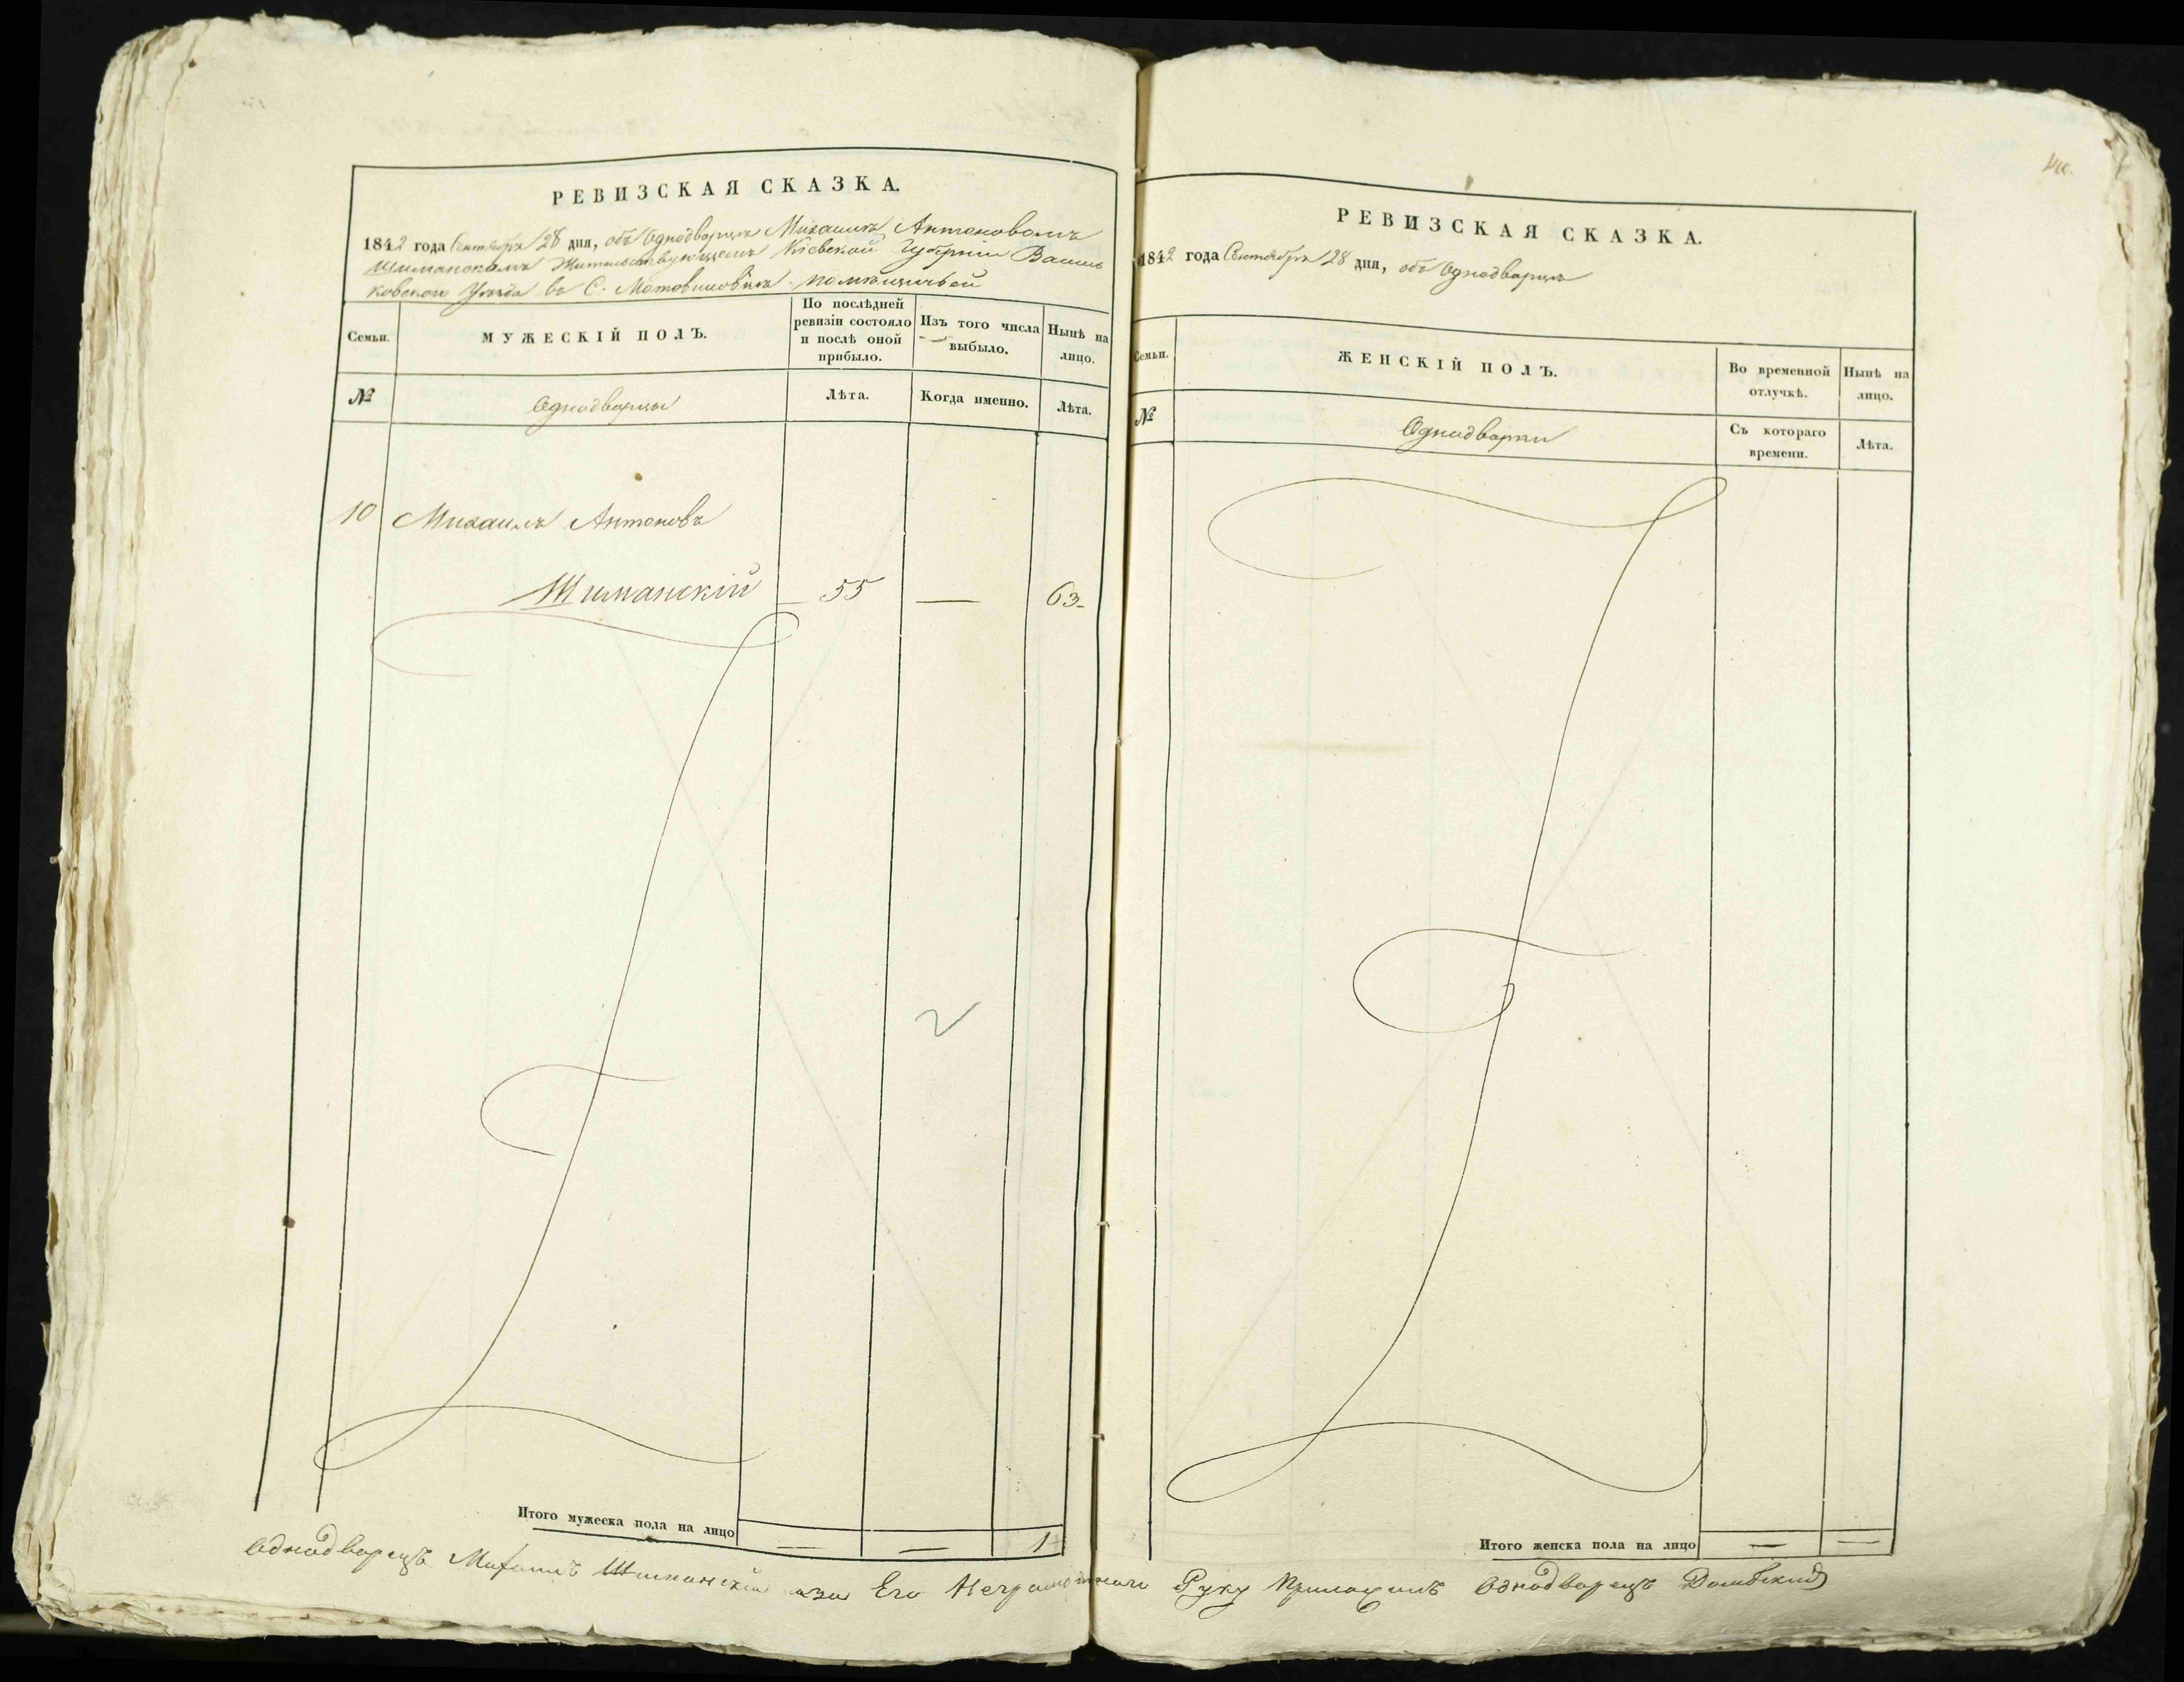 РЕВИЗСКАЯ СКАЗКА.
1842 года Сентября 28 дня, объ Однодворцѣ Михаилѣ Антоновомъ
Шиманскомъ Жительствующемъ Кіевской Губерніи Василь
ковскаго Уѣзда въ С. Мотовиловкѣ помѣщичьей
Семьи.
МУЖЕСКІЙ ПОЛЪ.
По послѣдней ревизіи состояло и послѣ оной прибыло.
Изъ того числа выбыло.
Нынѣ на лицо.
№
Однодворцы
Лѣта.
Когда именно.
Лѣта.
10 Михаилъ Антоновъ
Шиманскій 55 — 63
2
Итого мужеска пола на лицо — — 1
РЕВИЗСКАЯ СКАЗКА.
1842 года Сентября 28 дня, объ Однодворцѣ
Семьи.
ЖЕНСКІЙ ПОЛЪ.
Во временной отлучкѣ.
Нынѣ на лицо.
№
Однодворки
Съ котораго времени.
Лѣта.
Итого женска пола на лицо — —
Однодворецъ Михаилъ Шиманскій а за Его Неграмотнаго Руку Приложилъ Однодворецъ Домбскій